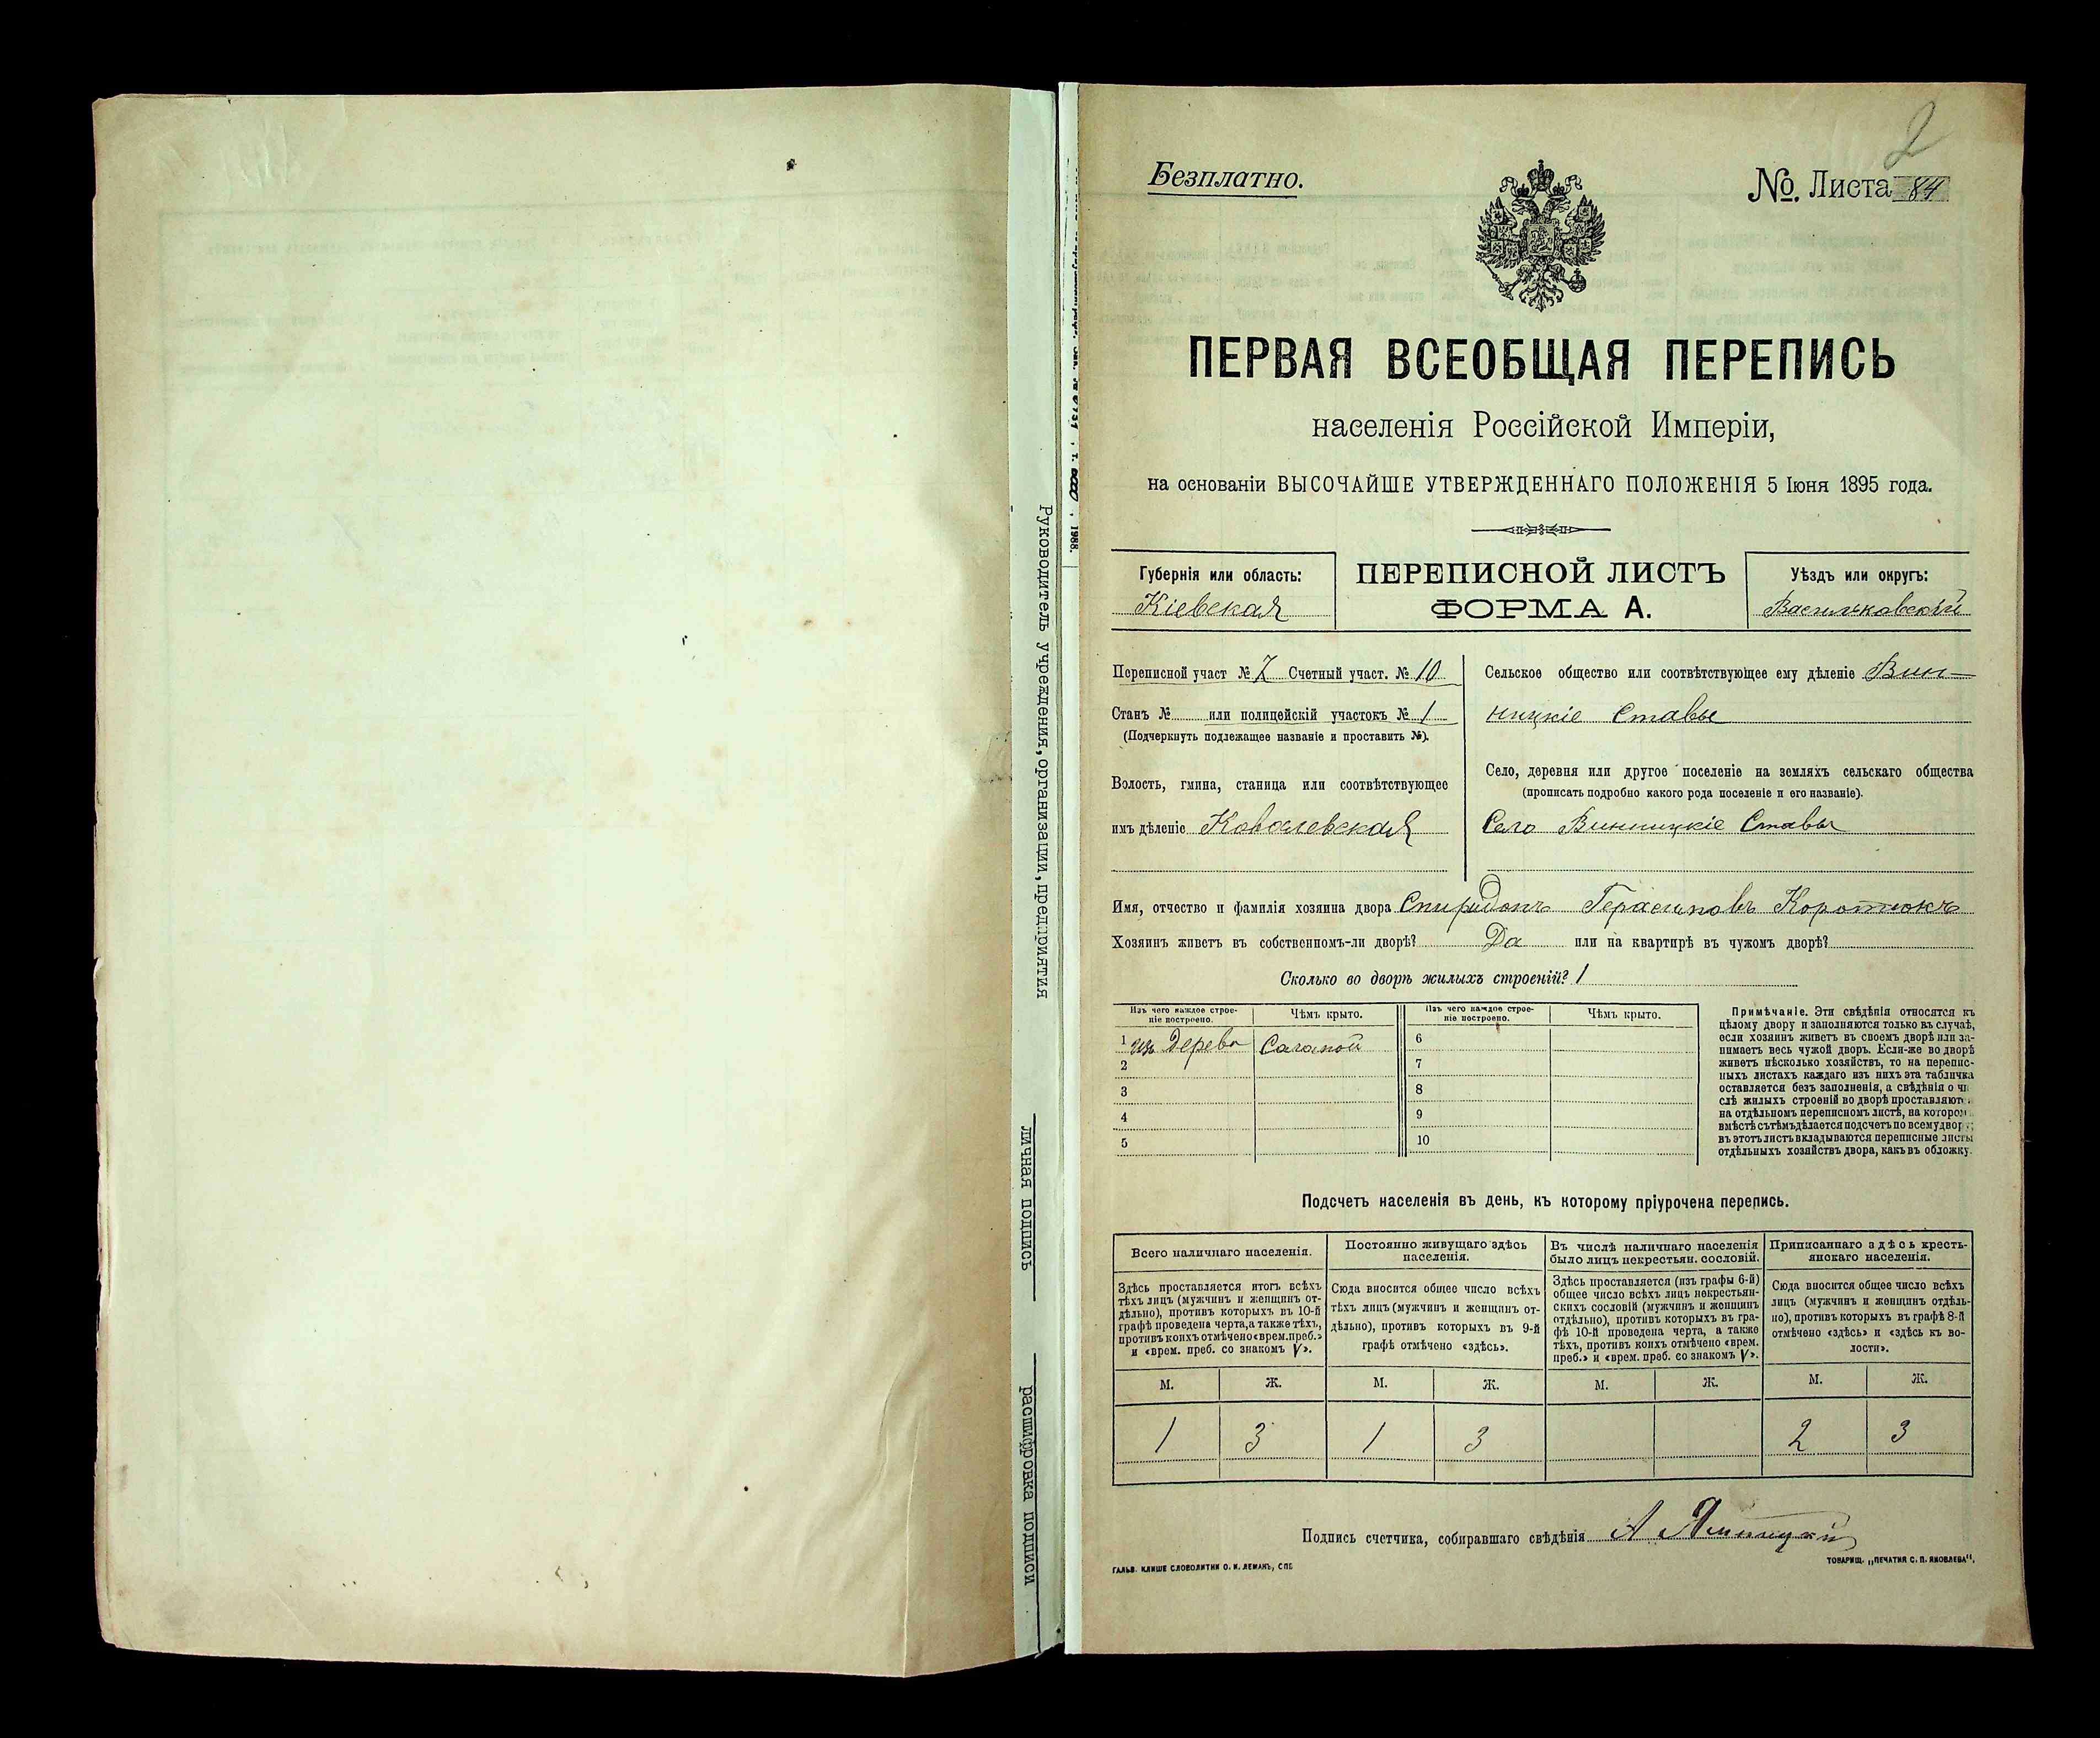 2
Безплатно.
№. Листа 84
ПЕРВАЯ ВСЕОБЩАЯ ПЕРЕПИСЬ
населенія Россійской Имперіи,
на основаніи ВЫСОЧАЙШЕ УТВЕРЖДЕННАГО ПОЛОЖЕНІЯ 5 Іюня 1895 года.
Губернія или область:
Кіевская
ПЕРЕПИСНОЙ ЛИСТЪ
ФОРМА А.
Уѣздъ или округъ:
Васильковскій
Переписной участ № 7 Счетный участ. № 10
Станъ № или полицейскій участокъ № 1
(Подчеркнуть подлежащее названіе и проставить №).
Волость, гмина, станица или соотвѣтствующее
имъ дѣленіе Ковалевская
Сельское общество или соотвѣтствующее ему дѣленіе Вин-
ницкіе Ставы
Село, деревня или другое поселеніе на земляхъ сельскаго общества
(прописать подробно какого рода поселеніе и его названіе).
Село Винницкіе Ставы
Имя, отчество и фамилія хозяина двора Спиридонъ Герасимовъ Коротюкъ
Хозяинъ живетъ въ собственномъ-ли дворѣ? Да или на квартирѣ въ чужомъ дворѣ?
Сколько во дворѣ жилыхъ строеній? 1
Изъ чего каждое строе-
ніе построено.
Чѣмъ крыто.
Изъ чего каждое строе-
ніе построено.
Чѣмъ крыто.
1 изъ Дерева Саламой 6
2 7
3 8
4 9
5 10
Примѣчаніе. Эти свѣдѣнія относятся къ
цѣлому двору и заполняются только въ случаѣ,
если хозяинъ живетъ въ своемъ дворѣ или за-
нимаетъ весь чужой дворъ. Если-же во дворѣ
живетъ нѣсколько хозяйствъ, то на перепис-
ныхъ листахъ каждаго изъ нихъ эта табличка
оставляется безъ заполненія, а свѣдѣнія о чи-
слѣ жилыхъ строеній во дворѣ проставляютъ
на отдѣльномъ переписномъ листѣ, на котором
вмѣстѣ сътѣмъ дѣлается подсчетъ по всему двору;
въ этотъ листъ вкладываются переписные листы
отдѣльныхъ хозяйствъ двора, какъ въ обложку.
Подсчетъ населенія въ день, къ которому пріурочена перепись.
Всего наличнаго населенія.
Здѣсь проставляется итогъ всѣхъ
тѣхъ лицъ (мужчинъ и женщинъ от-
дѣльно), противъ которыхъ въ 10-й
графѣ проведена черта, а также тѣхъ,
противъ коихъ отмѣчено «врем. преб.»
и «врем. преб. со знакомъ V».
Постоянно живущаго здѣсь
населенія.
Сюда вносится общее число всѣхъ
тѣхъ лицъ (мужчинъ и женщинъ от-
дѣльно), противъ которыхъ въ 9-й
графѣ отмѣчено «здѣсь».
Въ числѣ наличнаго населенія
было лицъ некрестьян. сословій.
Здѣсь проставляется (изъ графы 6-й)
общее число всѣхъ лицъ некрестьян-
скихъ сословій (мужчинъ и женщинъ
отдѣльно), противъ которыхъ въ гра-
фѣ 10-й проведена черта, а также
тѣхъ, противъ коихъ отмѣчено «врем.
преб.» и «врем. преб. со знакомъ V».
Приписаннаго здѣсь кресть-
янскаго населенія.
Сюда вносится общее число всѣхъ
лицъ (мужчинъ и женщинъ отдѣль-
но), противъ которыхъ въ графѣ 8-й
отмѣчено «здѣсь» и «здѣсь къ во-
лости».
М. Ж. М. Ж. М. Ж. М. Ж.
1 3 1 3 2 3
Подпись счетчика, собиравшаго свѣдѣнія А
ГАЛЬВ. КЛИШЕ СЛОВОЛИТНИ О. И. ЛЕМАНЪ, СПБ
ТОВАРИЩ. „ПЕЧАТНЯ С. П. ЯКОВЛЕВА“.
Руководитель учреждения, организации, предприятия
личная подпись
расшифровка подписи
1988.